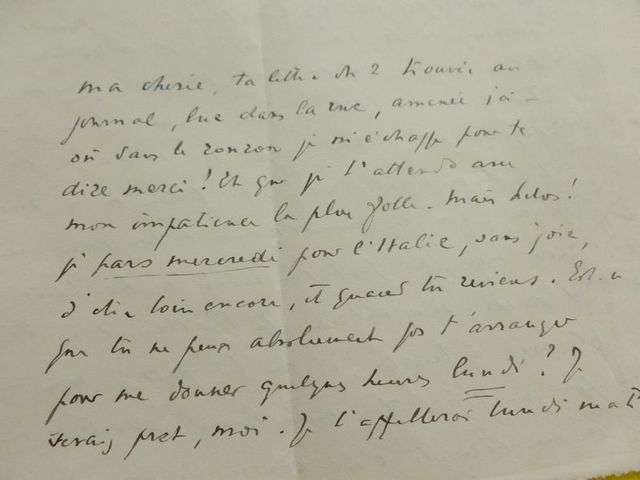 ma chérie, ta lettre du 2 trouvée au
journal, lue dans la rue, amenée ici
où dans le ronron je m'échappe pour te
dire merci ! Et que je t'attends avec
mon impatience la plus folle. Mais hélas !
je pars mercredi pour l'Italie, sans joie,
d'être loin encore, et quand tu reviens. Est-ce
que tu ne peux absolument pas t'arranger
pour me donner quelques heures lundi ? Je
serais prêt, moi. Je t'appellerai lundi matin